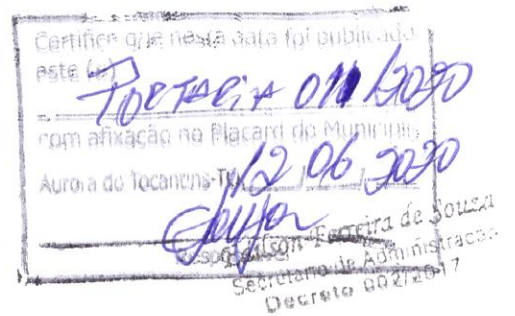 Certifico que nesta data foi publicado
este (a)
PORTARIA 011/2020
com afixação no Placard do Município
Aurora do Tocantins-TO, 12 06 2020
Ferreira de Souza
Secretario de Administração
Decreto 002/2017